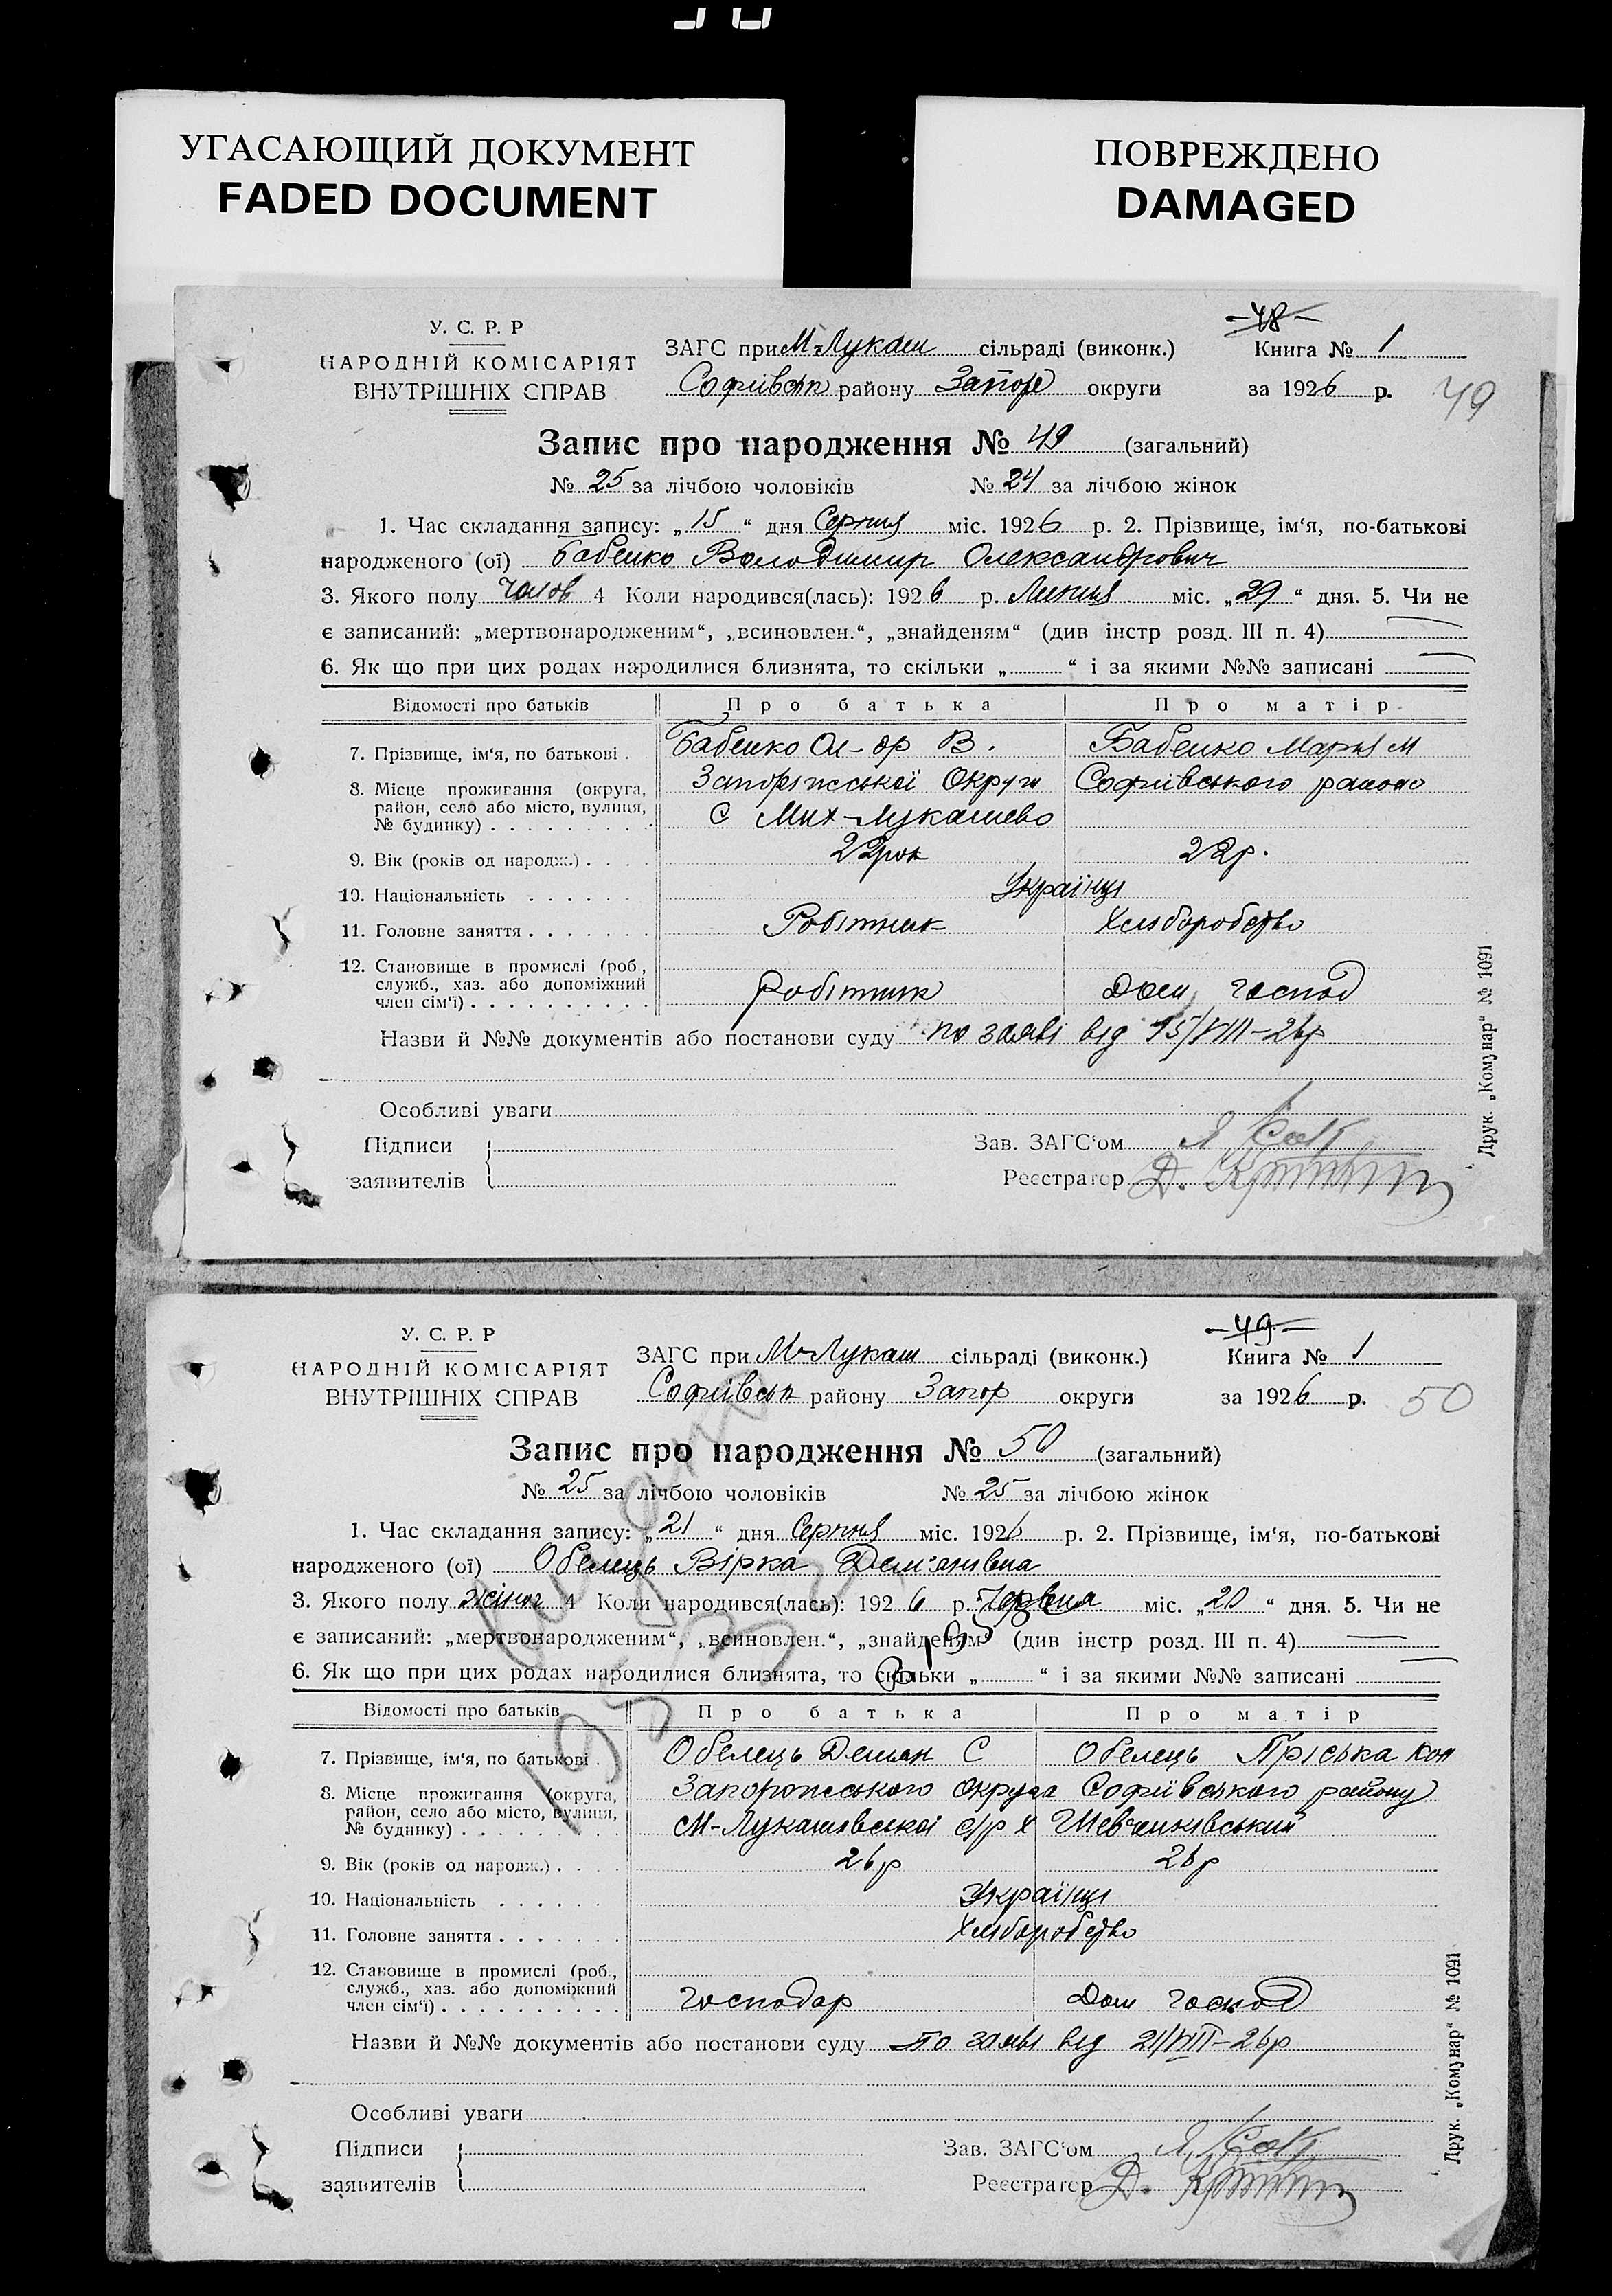 УГАСАЮЩИЙ ДОКУМЕНТ
FADED DOCUMENT
ПОВРЕЖДЕНО
DAMAGED
У. С. Р. Р
НАРОДНІЙ КОМІСАРІЯТ
ВНУТРІШНІХ СПРАВ
-48-
ЗАГС при М-Лукаш сільраді (виконк.) Книга № 1
Софиівськ району Запорр округи за 1926 р. 49
Запис про народження № 49 (загальний)
№ 25 за лічбою чоловіків № 24 за лічбою жінок
1. Час складання запису: „15“ дня Серпня міс. 1926 р. 2. Прізвище, ім‘я, по-батькові
народженого (ої) Бабенко Володимир Олександрович
3. Якого полу чолов 4 Коли народився(лась): 1926 р. Липня міс. „29“ дня. 5. Чи не
є записаний: „мертвонародженим“, „всиновлен.“, „знайденям“ (див інстр розд. III п. 4)
6. Як що при цих родах народилися близнята, то скільки „ “ і за якими №№ записані
Відомості про батьків Про батька Про матір
7. Прізвище, ім‘я, по батькові . Бабенко Ол-др В. Бабенко Мария М
8. Місце прожигання (округа, Запоріжської Округи Софиівського району
район, село або місто, вулиця, С Мих-Лукашево
№ будинку)
9. Вік (років од народж.) 22 рок 22 р.
10. Національність Українці
11. Головне заняття Робітник Хліборобство
12. Становище в промислі (роб.,
служб., хаз. або допоміжний робітник Дом господ
член сім‘ї)
Назви й №№ документів або постанови суду по заяві від 15/VIII-26р
Особливі уваги
Підписи Зав. ЗАГС‘ом
заявителів Реєстратор Д.
Друк. „Комунар“ № 1091
У. С. Р. Р
НАРОДНІЙ КОМІСАРІЯТ
ВНУТРІШНІХ СПРАВ
-49-
ЗАГС при М-Лукаш сільраді (виконк.) Книга № 1
Софиівськ району Запор округи за 1926 р. 50
Запис про народження № 50 (загальний)
№ 25 за лічбою чоловіків № 25 за лічбою жінок
1. Час складання запису: „21“ дня Серпня міс. 1926 р. 2. Прізвище, ім‘я, по-батькові
народженого (ої) Обелець Вірка Дем'янівна
3. Якого полу жіноч 4 Коли народився(лась): 1926 р. Червня міс. „20“ дня. 5. Чи не
є записаний: „мертвонародженим“, „всиновлен.“, „знайденям“ (див інстр розд. III п. 4)
6. Як що при цих родах народилися близнята, то скільки „ “ і за якими №№ записані
Відомості про батьків Про батька Про матір
7. Прізвище, ім‘я, по батькові . Обелець Демян С Обелець Пріська Кон
8. Місце прожигання (округа, Запорожського округа Софиівського району
район, село або місто, вулиця, М-Лукашівської с/р х Шевченківський
№ будинку)
9. Вік (років од народж.) 26р 26р
10. Національність Українці
11. Головне заняття Хліборобство
12. Становище в промислі (роб.,
служб., хаз. або допоміжний господар Дом господ
член сім‘ї)
Назви й №№ документів або постанови суду по заяві від 21/VIII-26р
Особливі уваги
Підписи Зав. ЗАГС‘ом
заявителів Реєстратор Д.
Друк. „Комунар“ № 1091